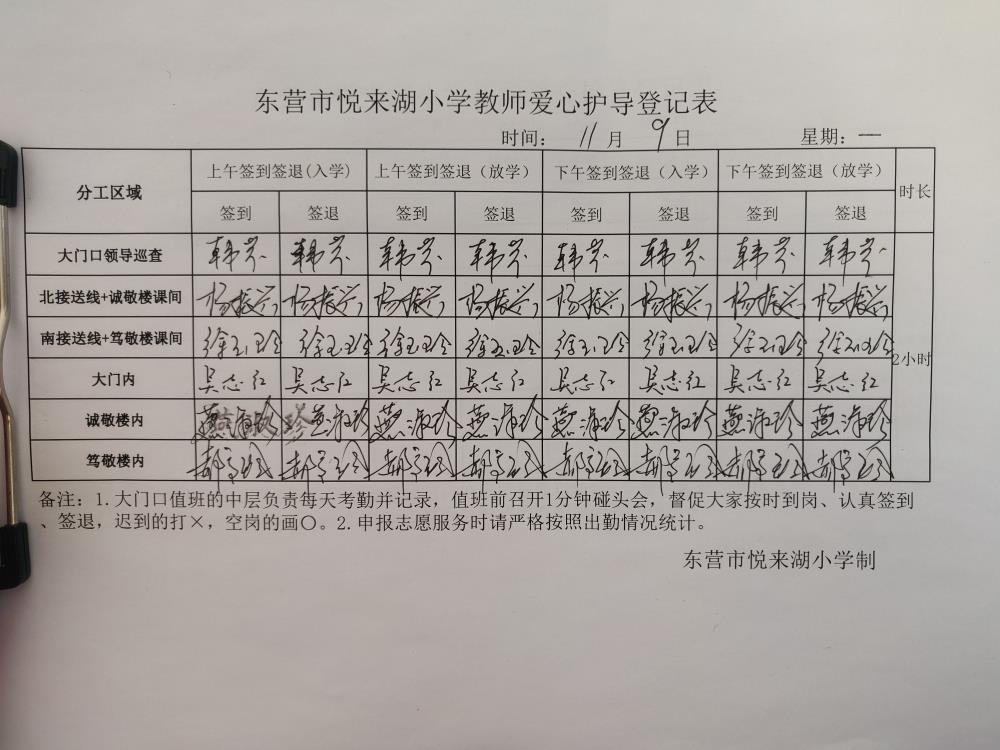 东营市悦来湖小学教师爱心护导登记表
时间： 11月 9日 星期：一
分工区域 上午签到签退(入学) 上午签到签退（放学） 下午签到签退（入学） 下午签到签退（放学） 时长
签到 签退 签到 签退 签到 签退 签到 签退
大门口领导巡查 韩芳 韩芳 韩芳 韩芳 韩芳 韩芳 韩芳 韩芳
北接送线+诚敬楼课间 杨振兴 杨振兴 杨振兴 杨振兴 杨振兴 杨振兴 杨振兴 杨振兴
南接送线+笃敬楼课间 徐玉玲 徐玉玲 徐玉玲 徐玉玲 徐玉玲 徐玉玲 徐玉玲 徐玉玲
2小时
大门内 吴志红 吴志红 吴志红 吴志红 吴志红 吴志红 吴志红 吴志红
诚敬楼内 燕淑珍 燕淑珍 燕淑珍 燕淑珍 燕淑珍 燕淑珍 燕淑珍 燕淑珍
笃敬楼内
备注：1.大门口值班的中层负责每天考勤并记录，值班前召开1分钟碰头会，督促大家按时到岗、认真签到
、签退，迟到的打×，空岗的画〇。2.申报志愿服务时请严格按照出勤情况统计。
东营市悦来湖小学制